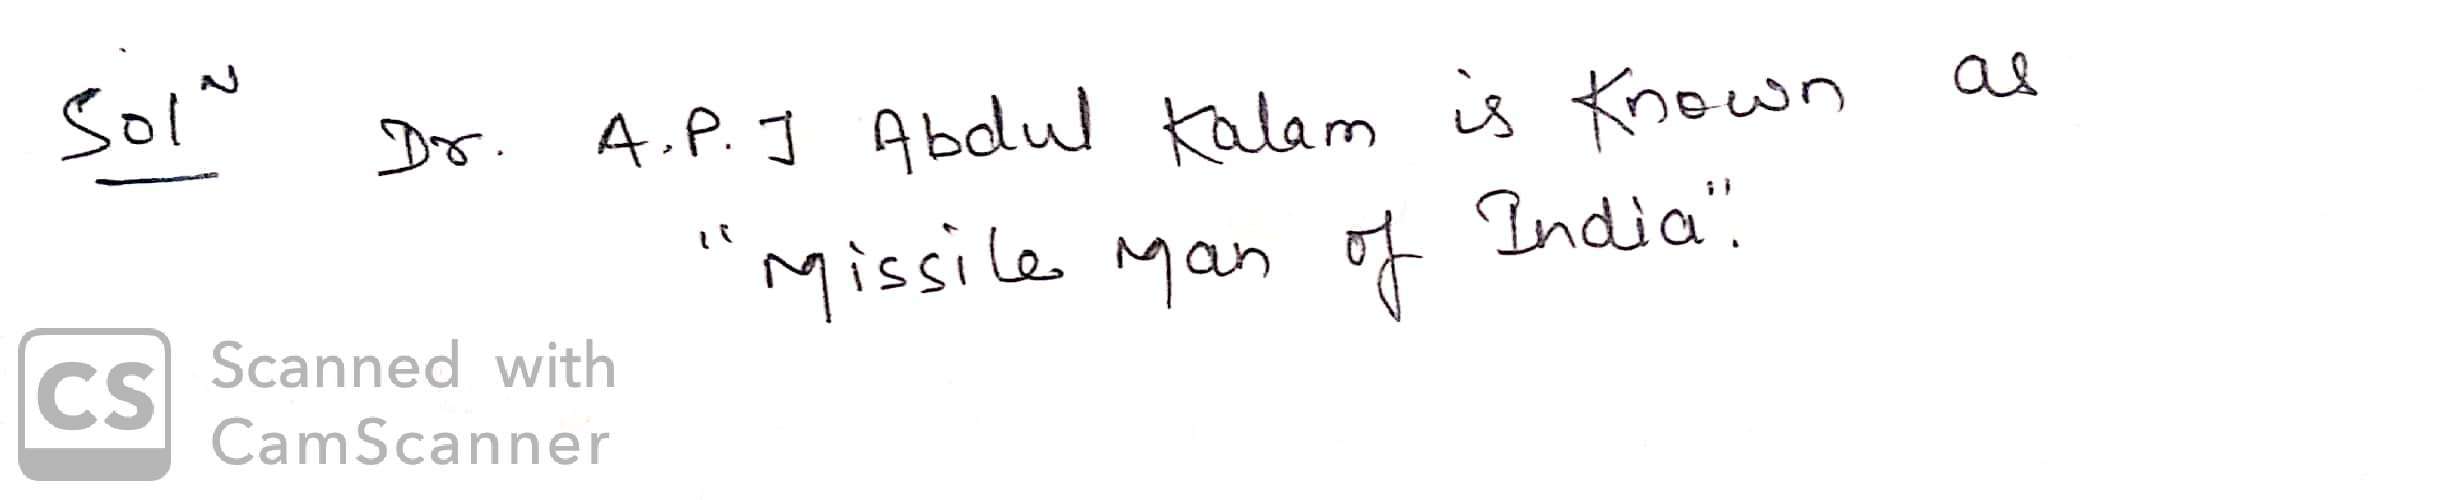 Solᴺ Dr. A.P.J Abdul Kalam is Known as
"Missile Man of India".
CS Scanned with
CamScanner